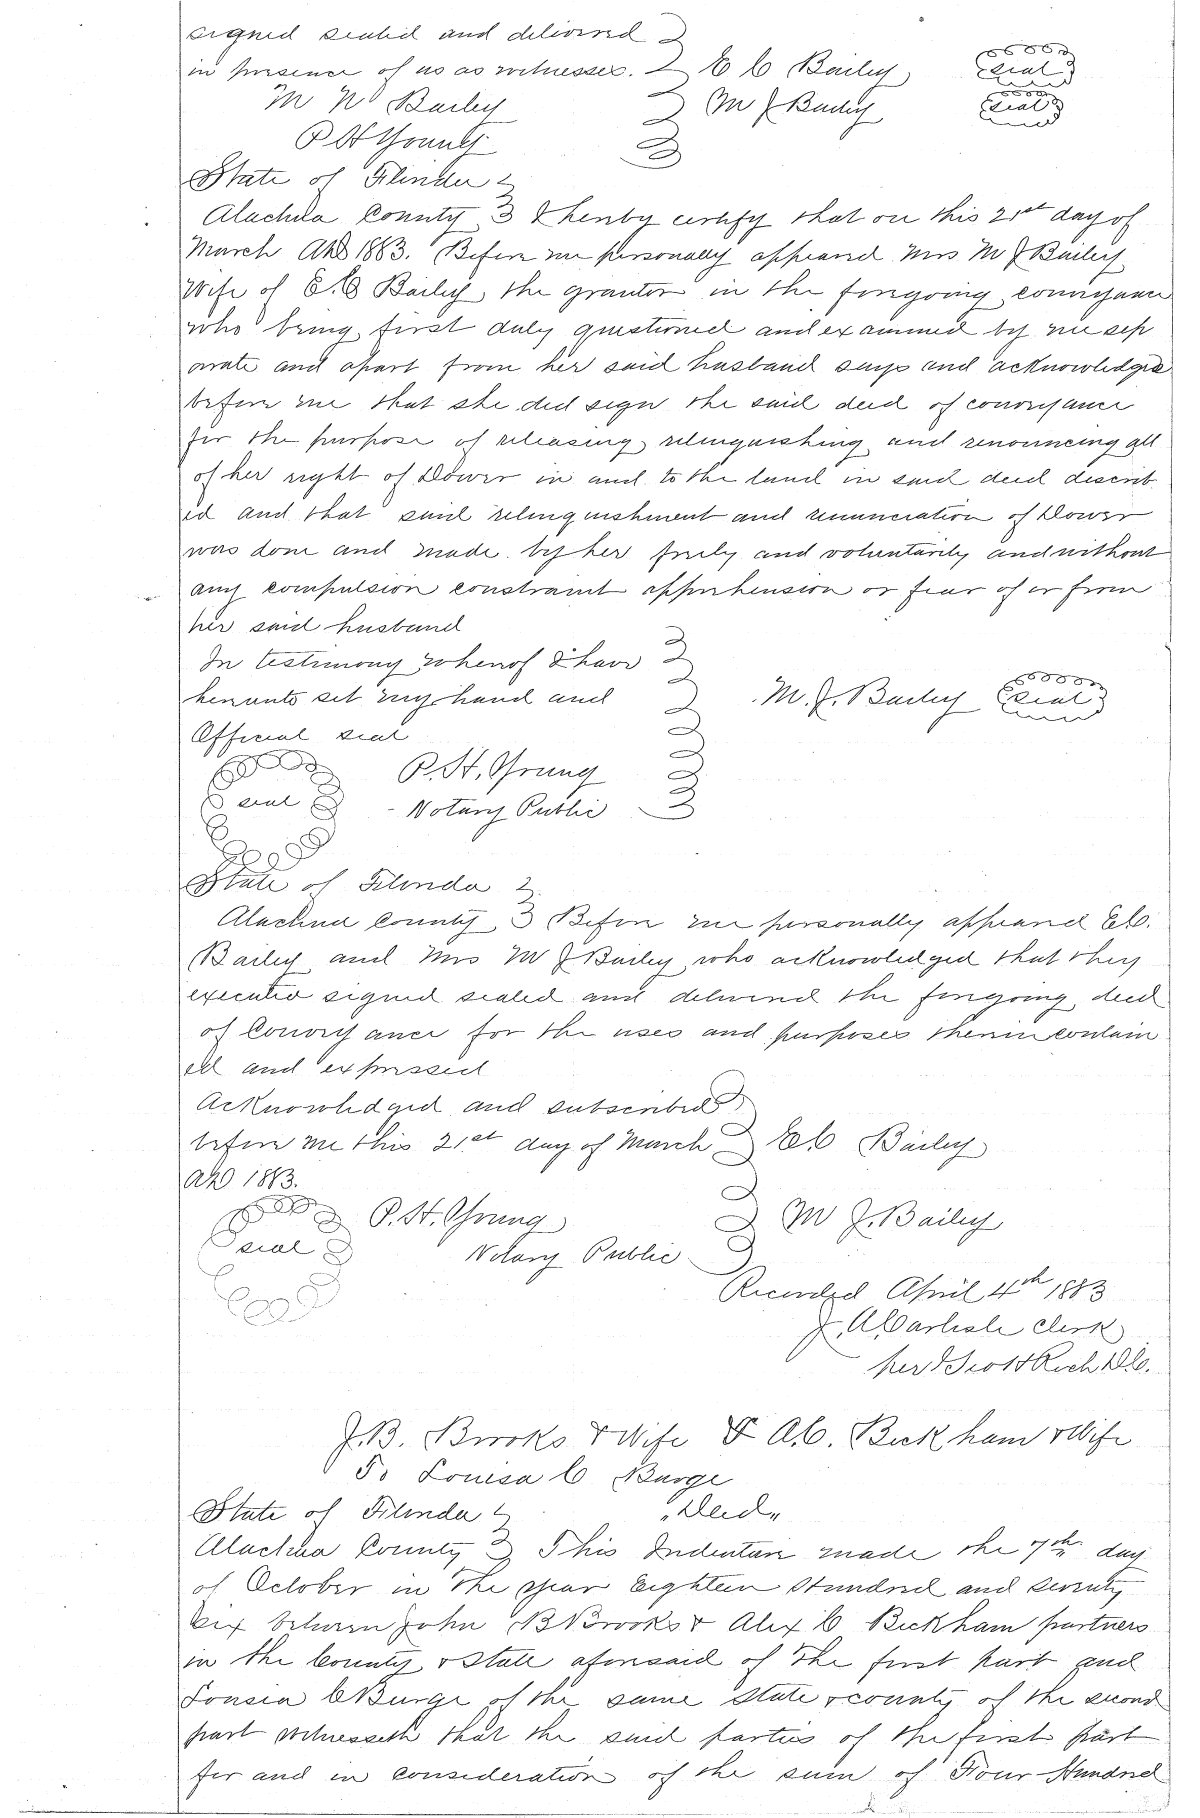 signed sealed and delivered
in presence of us as witnesses. E C Bailey seal
M N Bailey M J Bailey seal
P H Young
State of Florida
Alachua County I hereby certify that on this 21st day of
March AD 1883. Before me personally appeared Mrs M J Bailey
Wife of E. C Bailey, the grantor in the foregoing conveyance
who being first duly questioned and examined by me sep
arate and apart from her said husband says and acknowledges
before me that she did sign the said deed of conveyance
for the purpose of releasing relinquishing and renouncing all
of her right of Dower in and to the land in said deed describ
ed and that said relinquishment and renunciation of Dower
was done and made by her freely and voluntarily and without
any compulsion constraint apprehension or fear of or from
her said husband
In testimony whereof I have
hereunto set my hand and M. J. Bailey seal
Official seal
P. H. Young
seal Notary Public
State of Florida
Alachua County Before me personally appeared E C.
Bailey and Mrs M J Bailey who acknowledged that they
executed signed sealed and delivered the foregoing deed
of Convey ance for the uses and purposes therein contain
ed and expressed
Acknowledged and subscribed
before me this 21st day of March E C Bailey
AD 1883.
P. H. Young M J. Bailey
seal Notary Public
Recorded April 4th 1883
J. A Carlisle Clerk
per D.C.
J. B. Brooks & Wife & A. C. Beckham & Wife
To Louisa C Burge
State of Florida "Deed"
Alachua County This Indenture made the 7th day
of October in the year Eighteen Hundred and Seventy
Six between John B Brooks & Alex C Beckham partners
in the County & State aforesaid of the first part and
Louisa C Burge of the same State & county of the second
part Witnesseth that the said parties of the first part
for and in consideration of the sum of Four Hundred